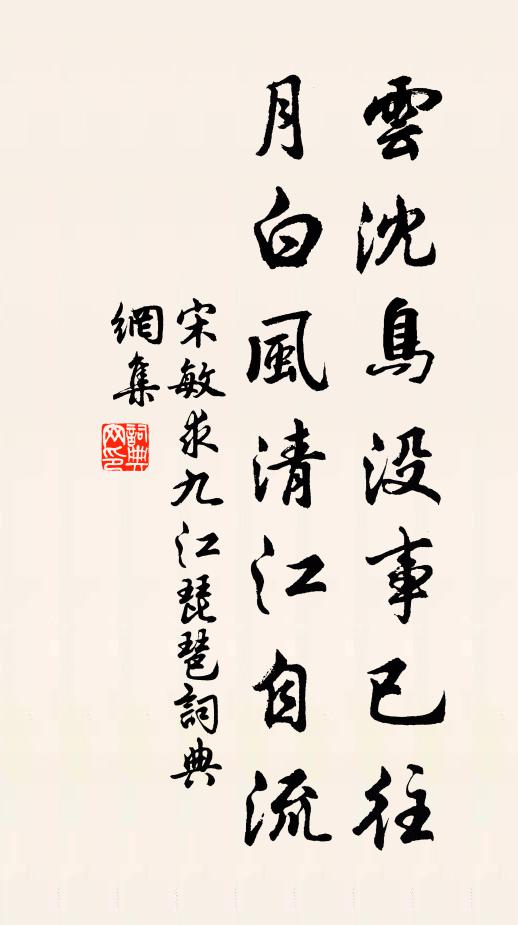 雲沈鳥没事已往
月白風清江自流
宋敏求九江琵琶詞典
網集
詞典
网印